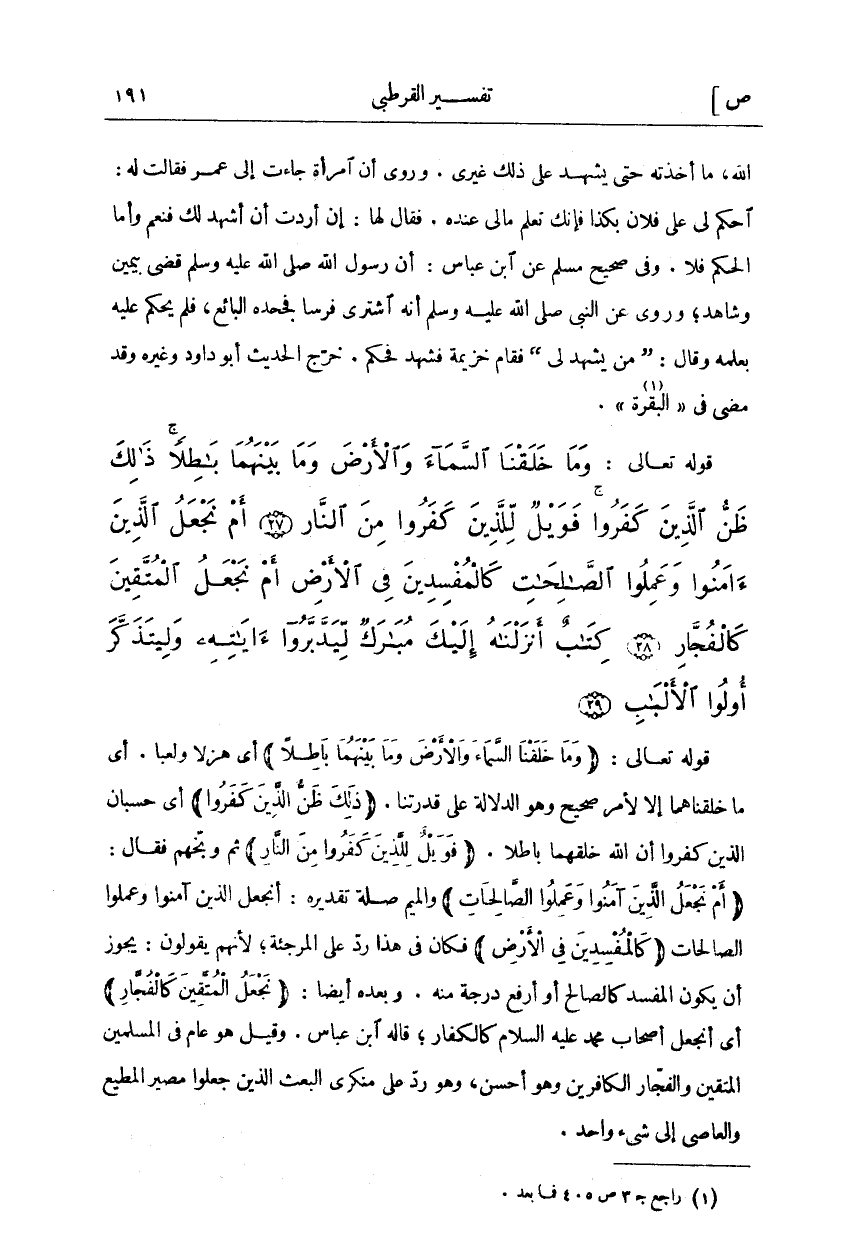 ص] تفسير القرطبى ١٩١
الله، ما أخذته حتى يشهد على ذلك غيرى . وروى أن ٱمرأة جاءت إلى عمر فقالت له :
ٱحكم لى على فلان بكذا فإنك تعلم مالى عنده . فقال لها : إن أردت أن أشهد لك فنعم وأما
الحكم فلا . وفى صحيح مسلم عن ٱبن عباس : أن رسول الله صلى الله عليه وسلم قضى بيمين
وشاهد؛ وروى عن النبى صلى الله عليه وسلم أنه ٱشترى فرسا فجحده البائع، فلم يحكم عليه
بعلمه وقال : ”من يشهد لى“ فقام خزيمة فشهد فحكم . خرّج الحديث أبو داود وغيره وقد
مضى فى «البقرة»(١) .
قوله تعالى : وَمَا خَلَقْنَا ٱلسَّمَآءَ وَٱلْأَرْضَ وَمَا بَيْنَهُمَا بَـٰطِلًا ۚ ذَٰلِكَ
ظَنُّ ٱلَّذِينَ كَفَرُوا ۚ فَوَيْلٌ لِّلَّذِينَ كَفَرُوا مِنَ ٱلنَّارِ ﴿٢٧﴾ أَمْ نَجْعَلُ ٱلَّذِينَ
ءَامَنُوا وَعَمِلُوا ٱلصَّـٰلِحَـٰتِ كَٱلْمُفْسِدِينَ فِى ٱلْأَرْضِ أَمْ نَجْعَلُ ٱلْمُتَّقِينَ
كَٱلْفُجَّارِ ﴿٢٨﴾ كِتَـٰبٌ أَنزَلْنَـٰهُ إِلَيْكَ مُبَـٰرَكٌ لِّيَدَّبَّرُوٓا ءَايَـٰتِهِۦ وَلِيَتَذَكَّرَ
أُولُوا ٱلْأَلْبَـٰبِ ﴿٢٩﴾
قوله تعالى : ﴿وَمَا خَلَقْنَا السَّمَاءَ وَالْأَرْضَ وَمَا بَيْنَهُمَا بَاطِلًا﴾ أى هزلا ولعبا . أى
ما خلقناهما إلا لأمر صحيح وهو الدلالة على قدرتنا . ﴿ذَلِكَ ظَنُّ الَّذِينَ كَفَرُوا﴾ أى حسبان
الذين كفروا أن الله خلقهما باطلا . ﴿فَوَيْلٌ لِلَّذِينَ كَفَرُوا مِنَ النَّارِ﴾ ثم وبّخهم فقال :
﴿أَمْ نَجْعَلُ الَّذِينَ آمَنُوا وَعَمِلُوا الصَّالِحَاتِ﴾ والميم صلة تقديره : أنجعل الذين آمنوا وعملوا
الصالحات ﴿كَالْمُفْسِدِينَ فِى الْأَرْضِ﴾ فكان فى هذا ردّ على المرجئة؛ لأنهم يقولون : يجوز
أن يكون المفسد كالصالح أو أرفع درجة منه . وبعده أيضا : ﴿نَجْعَلُ الْمُتَّقِينَ كَالْفُجَّارِ﴾
أى أنجعل أصحاب محمد عليه السلام كالكفار؛ قاله ٱبن عباس . وقيل هو عام فى المسلمين
المتقين والفجّار الكافرين وهو أحسن، وهو ردّ على منكرى البعث الذين جعلوا مصير المطيع
والعاصى إلى شىء واحد .
(١) راجع جـ ٣ ص ٤٠٥ فما بعد .